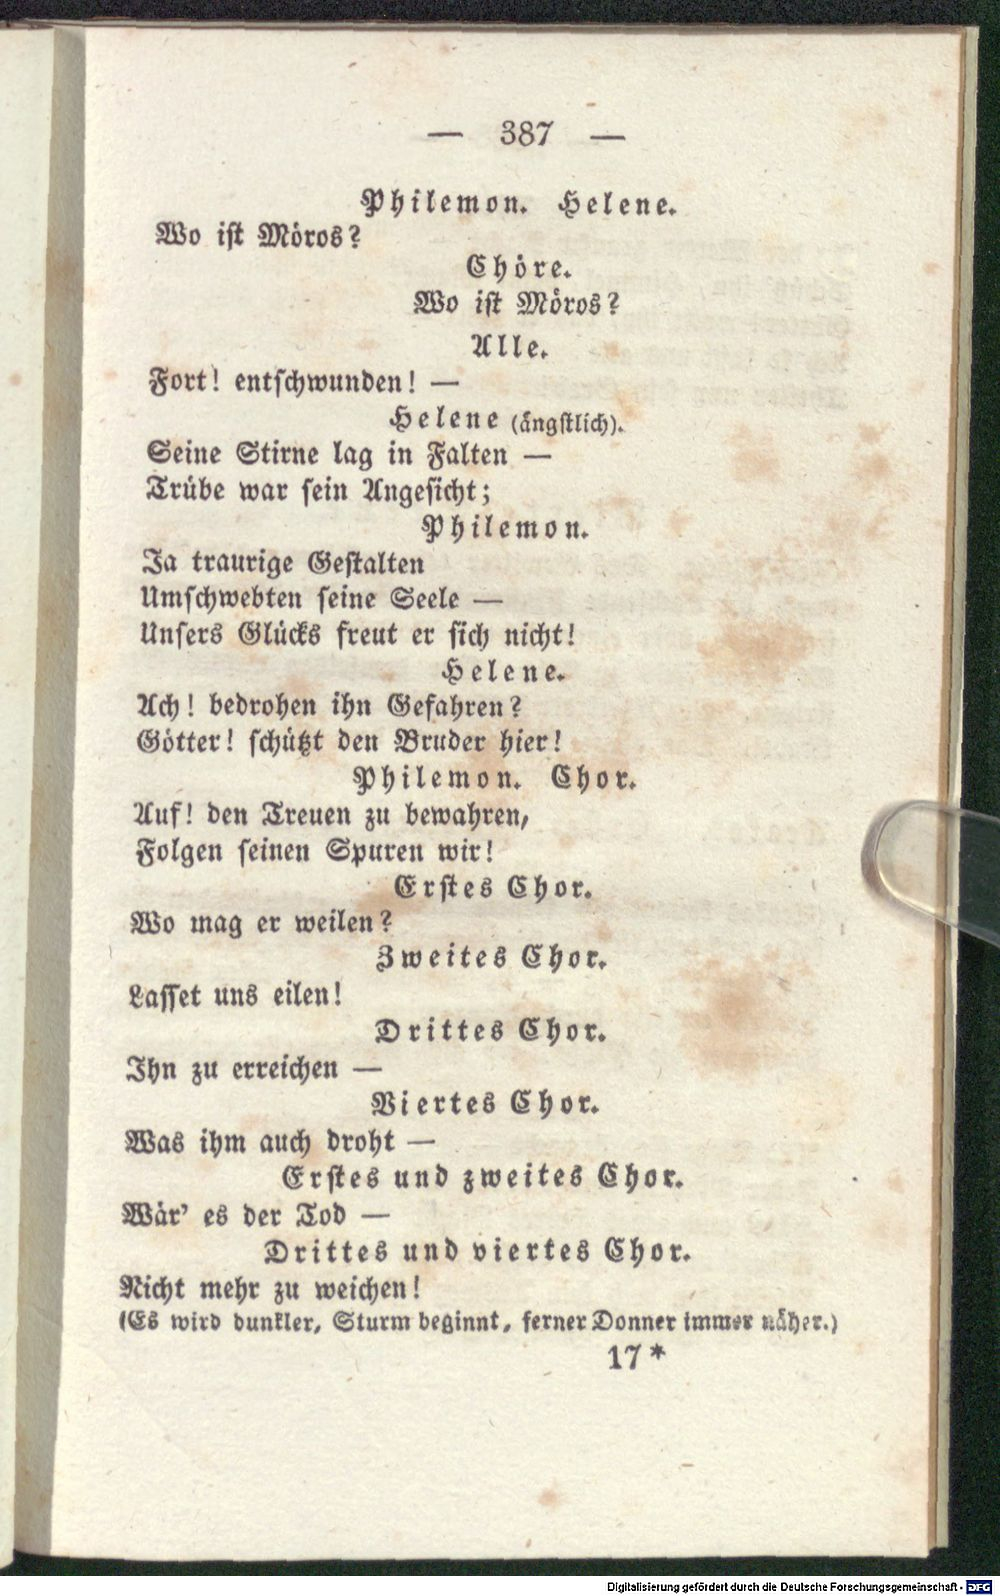 — 387 —
Philemon. Helene.
Wo ist Möros?
Chöre.
Wo ist Möros?
Alle.
Fort! entschwunden! —
Helene (ängstlich).
Seine Stirne lag in Falten —
Trübe war sein Angesicht;
Philemon.
Ja traurige Gestalten
Umschwebten seine Seele —
Unsers Glücks freut er sich nicht!
Helene.
Ach! bedrohen ihn Gefahren?
Götter! schützt den Bruder hier!
Philemon. Chor.
Auf! den Treuen zu bewahren,
Folgen seinen Spuren wir!
Erstes Chor.
Wo mag er weilen?
Zweites Chor.
Lasset uns eilen!
Drittes Chor.
Ihn zu erreichen —
Viertes Chor.
Was ihm auch droht —
Erstes und zweites Chor.
Wär' es der Tod —
Drittes und viertes Chor.
Nicht mehr zu weichen!
(Es wird dunkler, Sturm beginnt, ferner Donner immer näher.)
17*
Digitalisierung gefördert durch die Deutsche Forschungsgemeinschaft - DFG